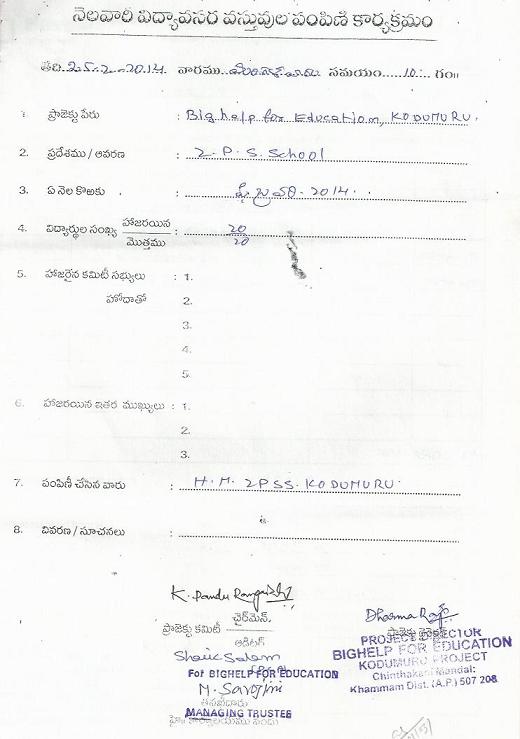 నెలవారి విద్యావసర వస్తువుల పంపిణి కార్యక్రమం
తేది 25-2-2014. వారము మంగళవారము సమయం 10 గం॥
1. ప్రాజెక్టు పేరు : Big help for Education, KODUMURU.
2. ప్రదేశము / ఆవరణ : Z. P. S. School
3. ఏ నెల కొఱకు : ఫిబ్రవరి - 2014.
4. విద్యార్థుల సంఖ్య హాజరయిన : 20
మొత్తము 20
5. హాజరైన కమిటీ సభ్యులు : 1.
హోదాతో 2.
3.
4.
5.
6. హాజరయిన ఇతర ముఖ్యులు : 1.
2.
3.
7. పంపిణీ చేసిన వారు : H. M. ZPSS. KODUMURU.
8. వివరణ / సూచనలు :
K. Pandu Ranga
ఛైర్‌మెన్.
ప్రాజెక్టు కమిటీ
ఆడిటర్
Shaik Salam
For BIGHELP FOR EDUCATION
M. Sarojini
MANAGING TRUSTEE
Dharma Raju
PROJECT DIRECTOR
BIGHELP FOR EDUCATION
KODUMURU PROJECT
Chinthakani Mandal:
Khammam Dist. (A.P.) 507 208